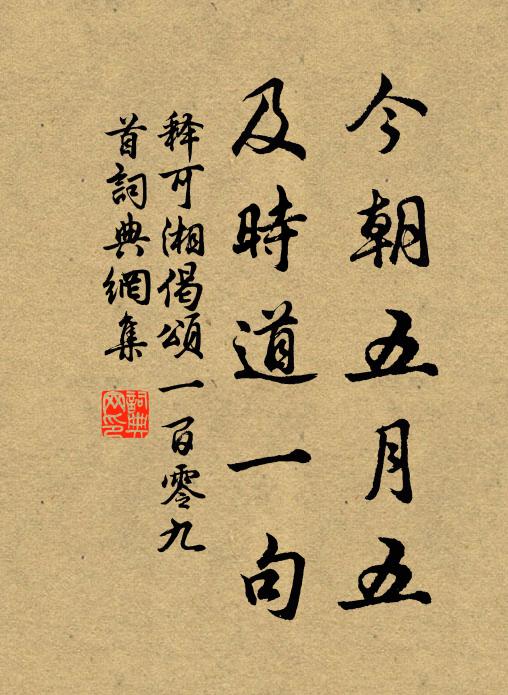 今朝五月五
及時道一句
釋可湘偈頌一百零九
首詞典網集
詞典網印